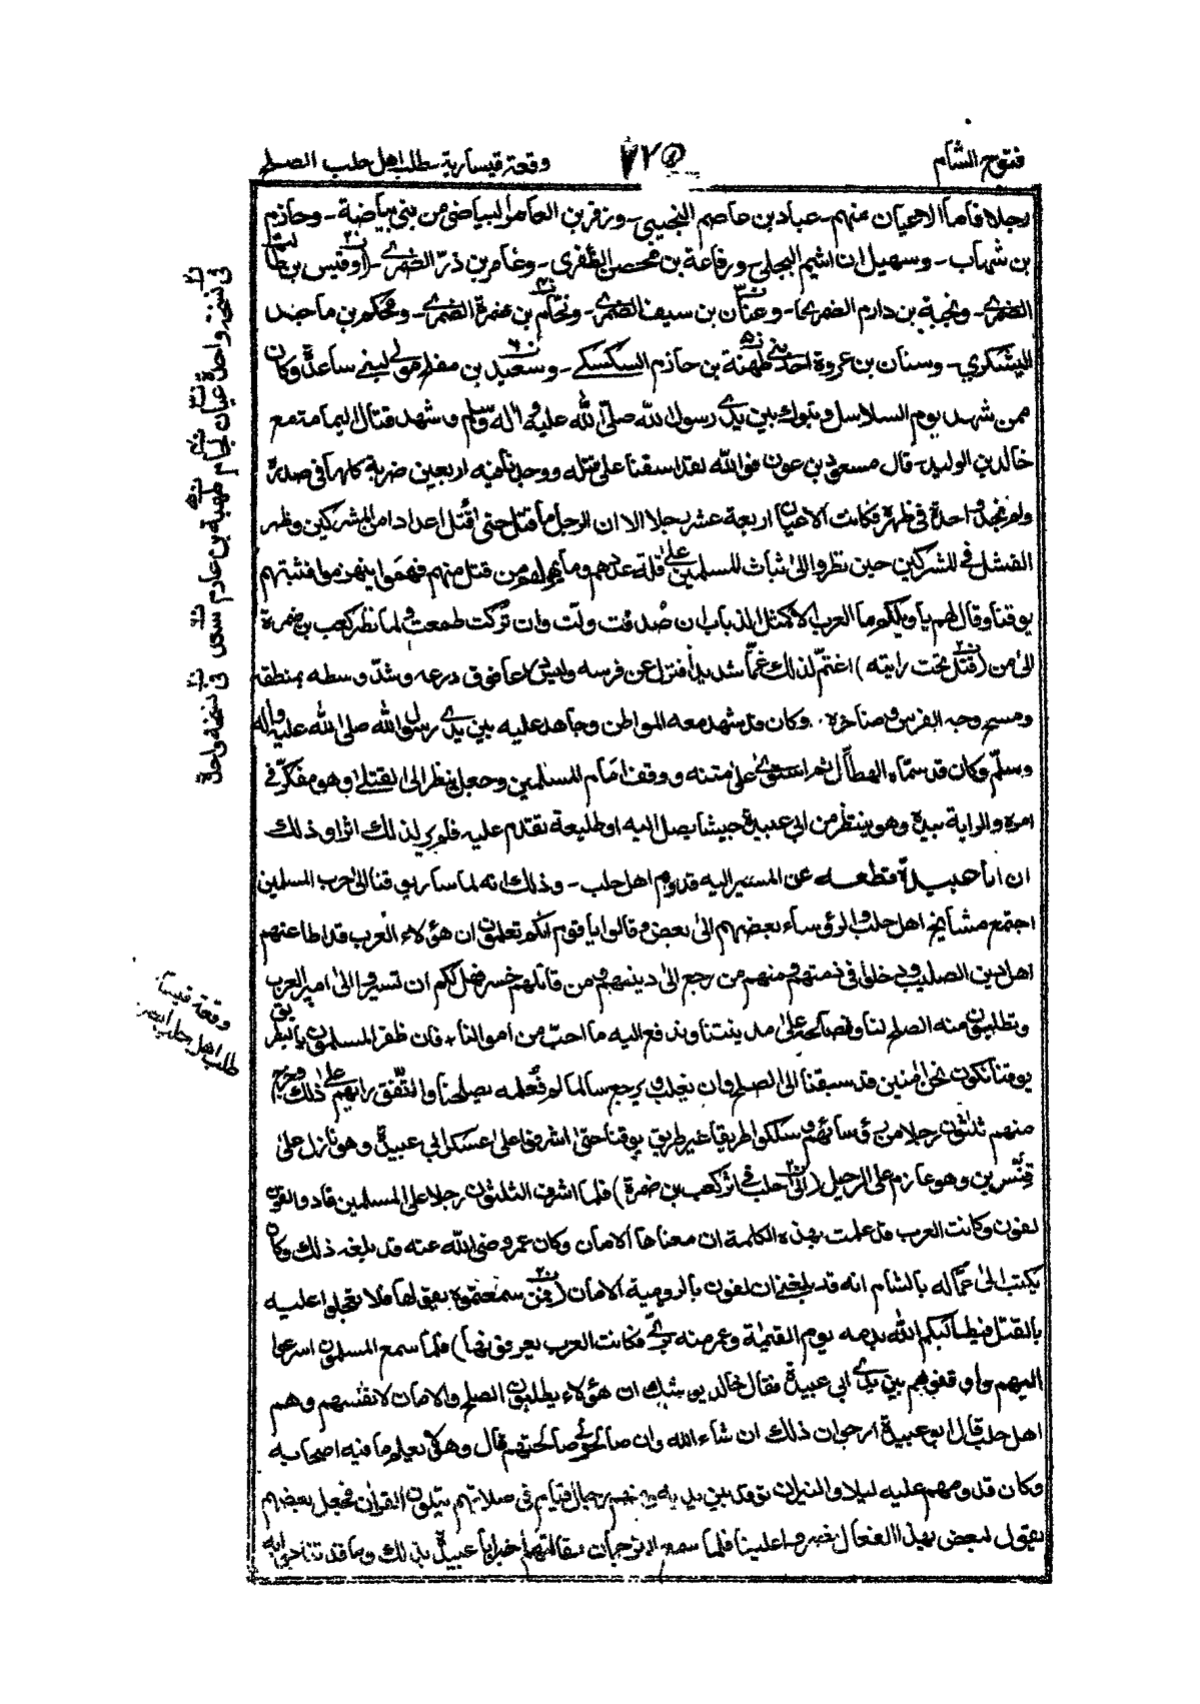 فتوح الشام
٢٢٥
وقعة قيسارية طلب اهل حلب الصلح
رجلا فاما الاعيان منهم۔ عباد بن عاصم النجيبي۔ وزفر بن العامر البياضي من بني بياضة۔ وحازم
بن شهاب۔ وسهيل ان اشيم البجلي۔ ورفاعة بن محصن الظفري۔ وعامر بن ذرّ الضمري۔ (اوقيس بن
الضمري۔ ونجبة بن دارم الضمري۔ وعنان بن سيف الضمري۔ ونخّام بن عنمرة الضمري۔ ومحكم بن ماجد
اليشكري۔ وسنان بن عروة احد بني طهنة بن حازم السكسكي۔ وسعيد بن مفلح مولى لبني ساعدة وكان
ممن شهد يوم السلاسل وتبوك بين يدي رسول الله صلّى الله عليه و اله وسلم وشهد قتال اليمامة مع
خالد بن الوليد۔ قال مسعود بن عون فوالله لقد اسفنا على قتله ووجدنا فيه اربعين ضربة كلها في صدره
ولم نجد واحدة في ظهره فكانت الاعيان اربعة عشر رجلا الا ان الرجل ما قتل حتى اقتل اعدادا من المشركين وظهر
الفشل في المشركين حين نظروا الى ثبات المسلمين على قلة عددهم وما هالهم من قتل منهم فهمّوا ينهزموا فثبتهم
يوقنا وقال لهم يا ويلكم وما العرب الا كمثل الذباب ان صُدمت ولّت وان تُركت طمعت ولما نظر كعب بن ضمرة
الى من (قتل تحت رايته) اغتمّ لذلك غمّا شديدا فنزل عن فرسه ولبس لاعا فوق درعه وشدّ وسطه بمنطقة
ومسح وجه الفرس ومناخره. وكان قد شهد معه المواطن وجاهد عليه بين يدي رسول الله صلى الله عليه واله
وسلّم وكان قد سمّاه الهطّال ثم استوى على متنه ووقف امام المسلمين وجعل ينظر الى القتلى وهو مفكرّ في
امره والراية بيده وهو ينتظر من ابي عبيدة جيشا يصل اليه او طليعة تقدم عليه فلم ير لذلك اثرا وذلك
ان ابا عبيدة قطعه عن المسير اليه قدوم اهل حلب۔ وذلك انه لما سار يوقنا الى حرب المسلمين
اجتمع مشايخ اهل حلب والرؤساء بعضهم الى بعض وقالوا يا قوم انكم تعلمون ان هؤلاء العرب قد اطاعتهم
اهل دين الصليب ودخلوا في ذمتهم ومنهم من رجع الى دينهم ومن قاتلهم خسر فهل لكم ان تسيروا الى امير العرب
وتطلبون منه الصلح لنا ونصالحه على مدينتنا وندفع اليه ما احبّ من اموالنا۔ فان ظفر المسلمون بالبطريق
يوقنا نكون نحن امنين قد سبقنا الى الصلح وان يغلب ويرجع سالما لم نُعلمه بصلحنا واتّفق رايهم على ذلك وخرج
منهم ثلثون رجلا من رؤسائهم وسلكوا طريقا غير طريق يوقنا حتى اشرفوا على عسكر ابي عبيدة وهو نازل على
قنّسرين وهو عازم على الرحيل (الى حلب في اثر كعب بن ضمرة) فلما اشرف الثلثون رجلا على المسلمين قادوا لغون
لغون وكانت العرب قد علمت بهذه الكلمة ان معناها الامان وكان عمر رضي الله عنه قد بلغه ذلك وكان
يكتب الى عمّاله بالشام انه قد بلغني ان لغون بالرومية الامان (فمن سمعتموه يقولها فلا تعجلوا عليه
بالقتل فيطالبكم الله بدمه يوم القيمة وعمر منه بريّ فكانت العرب يعرفونها) فلما سمع المسلمون اسرعوا
اليهم واوقفوهم بين يدي ابي عبيدة فقال خالد يوشك ان هؤلاء يطلبون الصلح والامان لانفسهم وهم
اهل حلب قال ابو عبيدة ارجو ان ذلك ان شاء الله وان صالحوني صالحتهم قال وهو لا يعلم ما فيه اصحابه
وكان قدومهم عليه ليلا والنيران توقد بين يديه ومنهم رجال قيام في صلاتهم يتلون القران فجعل بعضهم
يقول لبعض بهذا الفعال ينصروا علينا فلما سمع الترجمان مقالتهم اخبر ابا عبيدة بذلك وما قد تناجوا به
وقعة قيسارية
طلب اهل حلب الصلح